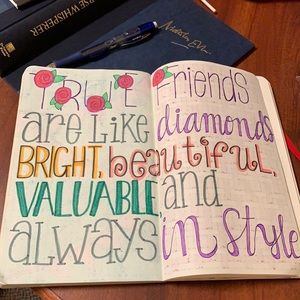 RSE WHISPERER
TRUE Friends
are Like diamonds
BRIGHT, beautiful,
VALUABLE and
always in Style